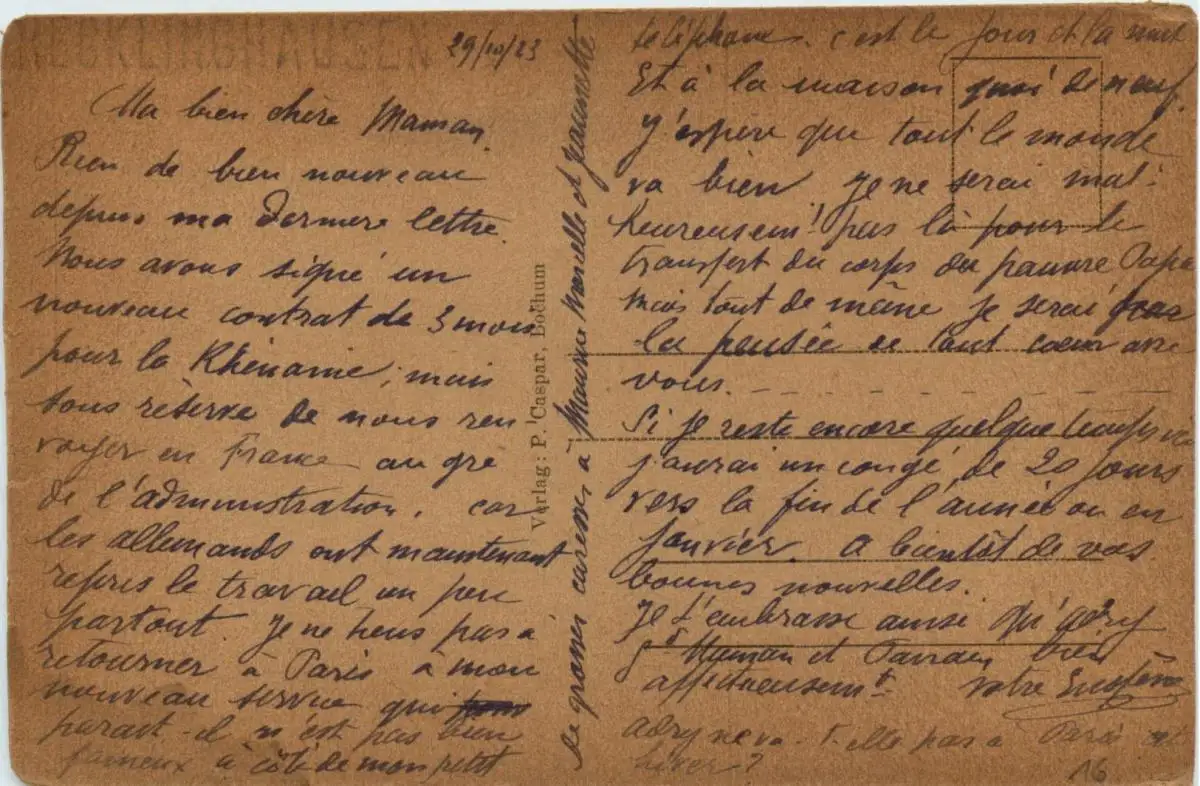 RECKLINGHAUSEN
29/10/23
Ma bien chère Maman
Rien de bien nouveau
depuis ma dernière lettre.
Nous avons signé un
nouveau contrat de 3 mois
pour la Rhénanie, mais
sous réserve de nous ren
voyer en France au gré
de l'administration, car
les allemands ont maintenant
repris le travail un peu
partout. Je ne tiens pas à
retourner à Paris à mon
nouveau service qui
parait-il n'est pas bien
fameux à côté de mon petit
téléphones. c'est le jour et la nuit
Et à la maison quoi de neuf.
J'espère que tout le monde
va bien. je ne serai mal-
heureusemt pas là pour le
transfert du corps du pauvre Papa
mais tout de même je serai par
la pensée de tout cœur avec
vous.
Si je reste encore quelque temps
j'aurai un congé de 20 jours
vers la fin de l'année ou en
janvier. A bientôt de vos
bonnes nouvelles.
Je t'embrasse ainsi qu'adry
gd Maman et Parrain bien
affectueusemt. votre
adry ne va-t-elle pas à Paris cet
hiver?
16
de grosses caresses à et Jeannette
Verlag: P. Caspar, Bochum